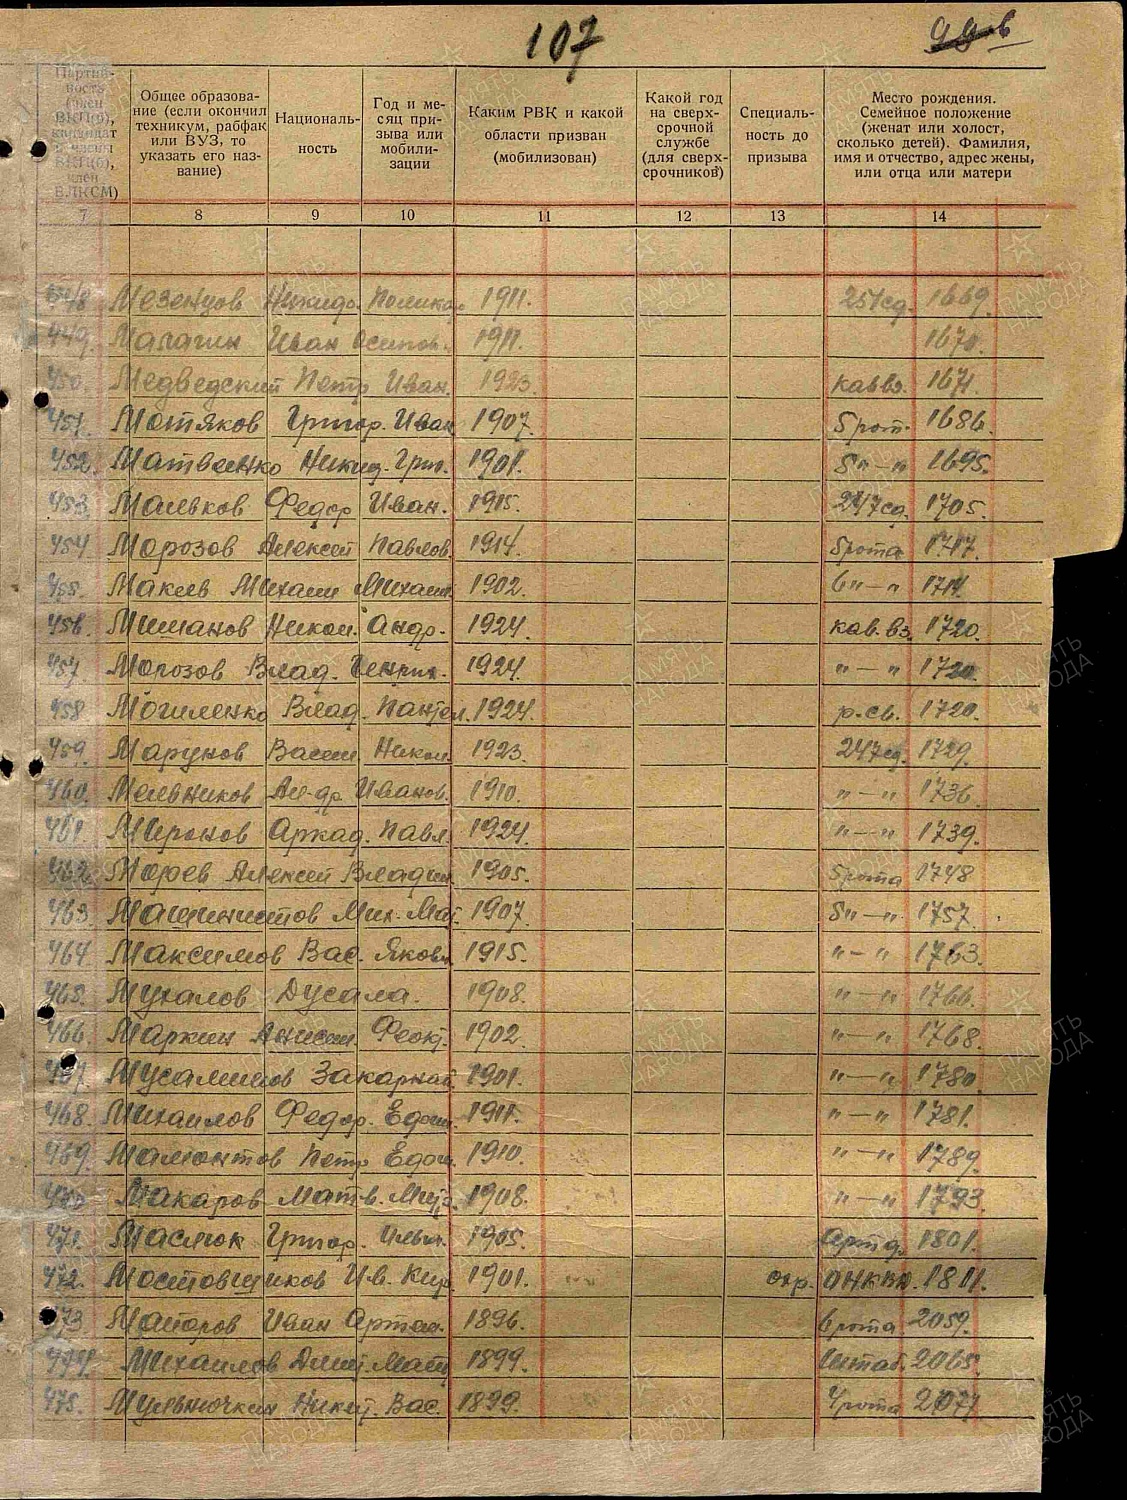 107
99 в
Партий-
ность
(член
ВКП(б),
кандидат
в члены
ВКП(б),
член
ВЛКСМ)
Общее образова-
ние (если окончил
техникум, рабфак
или ВУЗ, то
указать его наз-
вание)
Националь-
ность
Год и ме-
сяц при-
зыва или
мобили-
зации
Каким РВК и какой
области призван
(мобилизован)
Какой год
на сверх-
срочной
службе
(для сверх-
срочников)
Специаль-
ность до
призыва
Место рождения.
Семейное положение
(женат или холост,
сколько детей). Фамилия,
имя и отчество, адрес жены,
или отца или матери
7 8 9 10 11 12 13 14
448 Мезенцов Никифо. Поликар 1911. 251сд. 1669.
449. Малагин Иван Осипов. 1911. 1670.
450. Медведский Петр Иван. 1923. кав вз. 1671.
451. Мотяков Григор. Иван 1907. 5 рот. 1686.
452. Матвеенко Никид. Григ. 1901. 5 "—" 1695.
453. Мальков Федор Иван. 1915. 247сд. 1705.
454. Морозов Алексей Павлов. 1914. 5 рота 1717.
455. Макеев Михаил Михаил. 1902. 6 "—" 1717.
456. Мишанов Никол. Андр. 1924. кав. вз. 1720.
457. Морозов Влад. Генрих. 1924. "—" 1720.
458. Могиленко Влад. Пантел. 1924. р.св. 1720.
459. Марунов Васил. Никол. 1923. 247сд. 1729.
460. Мельников Ал-др. Иванов. 1910. "—" 1736.
461. Миронов Аркад. Павл. 1924. "—" 1739.
462. Мореев Алексей Владим. 1905. 5 рота 1748
463. Машинистов Мих. Мат. 1907. 5 "—" 1757.
464. Максимов Вас. Яковл. 1915. "—" 1763.
465. Мухалов Дусала. 1908. "—" 1766.
466. Маркин Анисим Феокт. 1902. "—" 1768.
467. Мусалимов Закарнай. 1901. "—" 1780.
468. Михаилов Федор. 1911. "—" 1781.
469. Мамонтов Петр 1910. "—" 1789.
470 Макаров Матв. Митр. 1908. "—" 1793.
471. Маслюк Григор. Ильич. 1905. 1801.
472. Мостовщиков Ив. Кир. 1901. охр. ОНКВД. 1811.
473. Майоров Иван Артам. 1896. 6 рота 2059.
474. Михаилов Дмит. Матв. 1899. Штаб. 2065.
475. Мульнючкин Никит. Вас. 1899. 4 рота 2077
ПАМЯТЬ НАРОДА